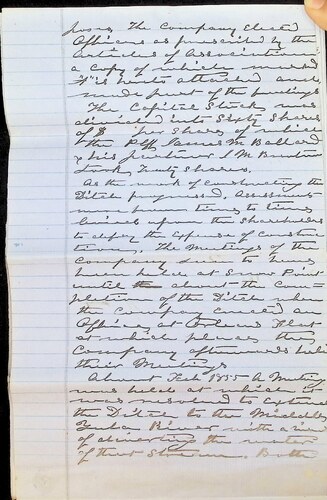 poses. The Company Elected
Officers as prescribed by the
Articles of Association
a copy of which marked
is hereto attached and
made part of the pleadings
The Capital Stock was
divided into Sixty Shares
of $ per Share of which
the Plff James M Ballard
& his partner J M
took Twenty Shares.
As the work of constructing the
Ditch progressed, Assessments
were from time to time
levied upon the shareholders
to defray the expense of construc
tion. The Meetings of the
Company seem to have
been held at Snow Point
until about the Com-
pletion of the Ditch when
the Company erected an
Office at Orleans Flat
at which place the
Company afterwards held
their Meetings
About Feb 1855 A Meeting
was held at which it
was resolved to extend
the Ditch to the Middle
Yuba River with a view
of diverting the water
of that Stream. Both